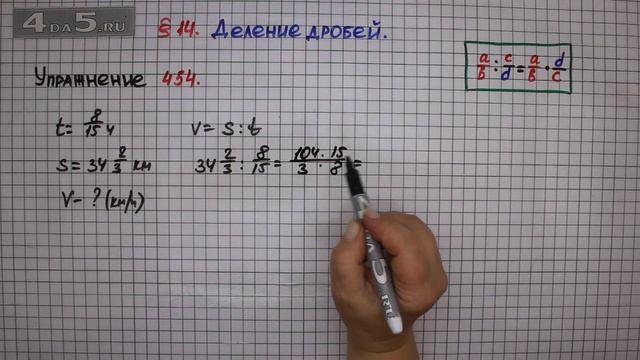 4DA5.RU
§ 14. Деление дробей.
a/b : c/d = a/b · d/c
Упражнение 454.
t = 8/15 ч
V = S : t
S = 34 2/3 км
34 2/3 : 8/15 = 104 · 15 / 3 · 8 =
V - ? (км/ч)